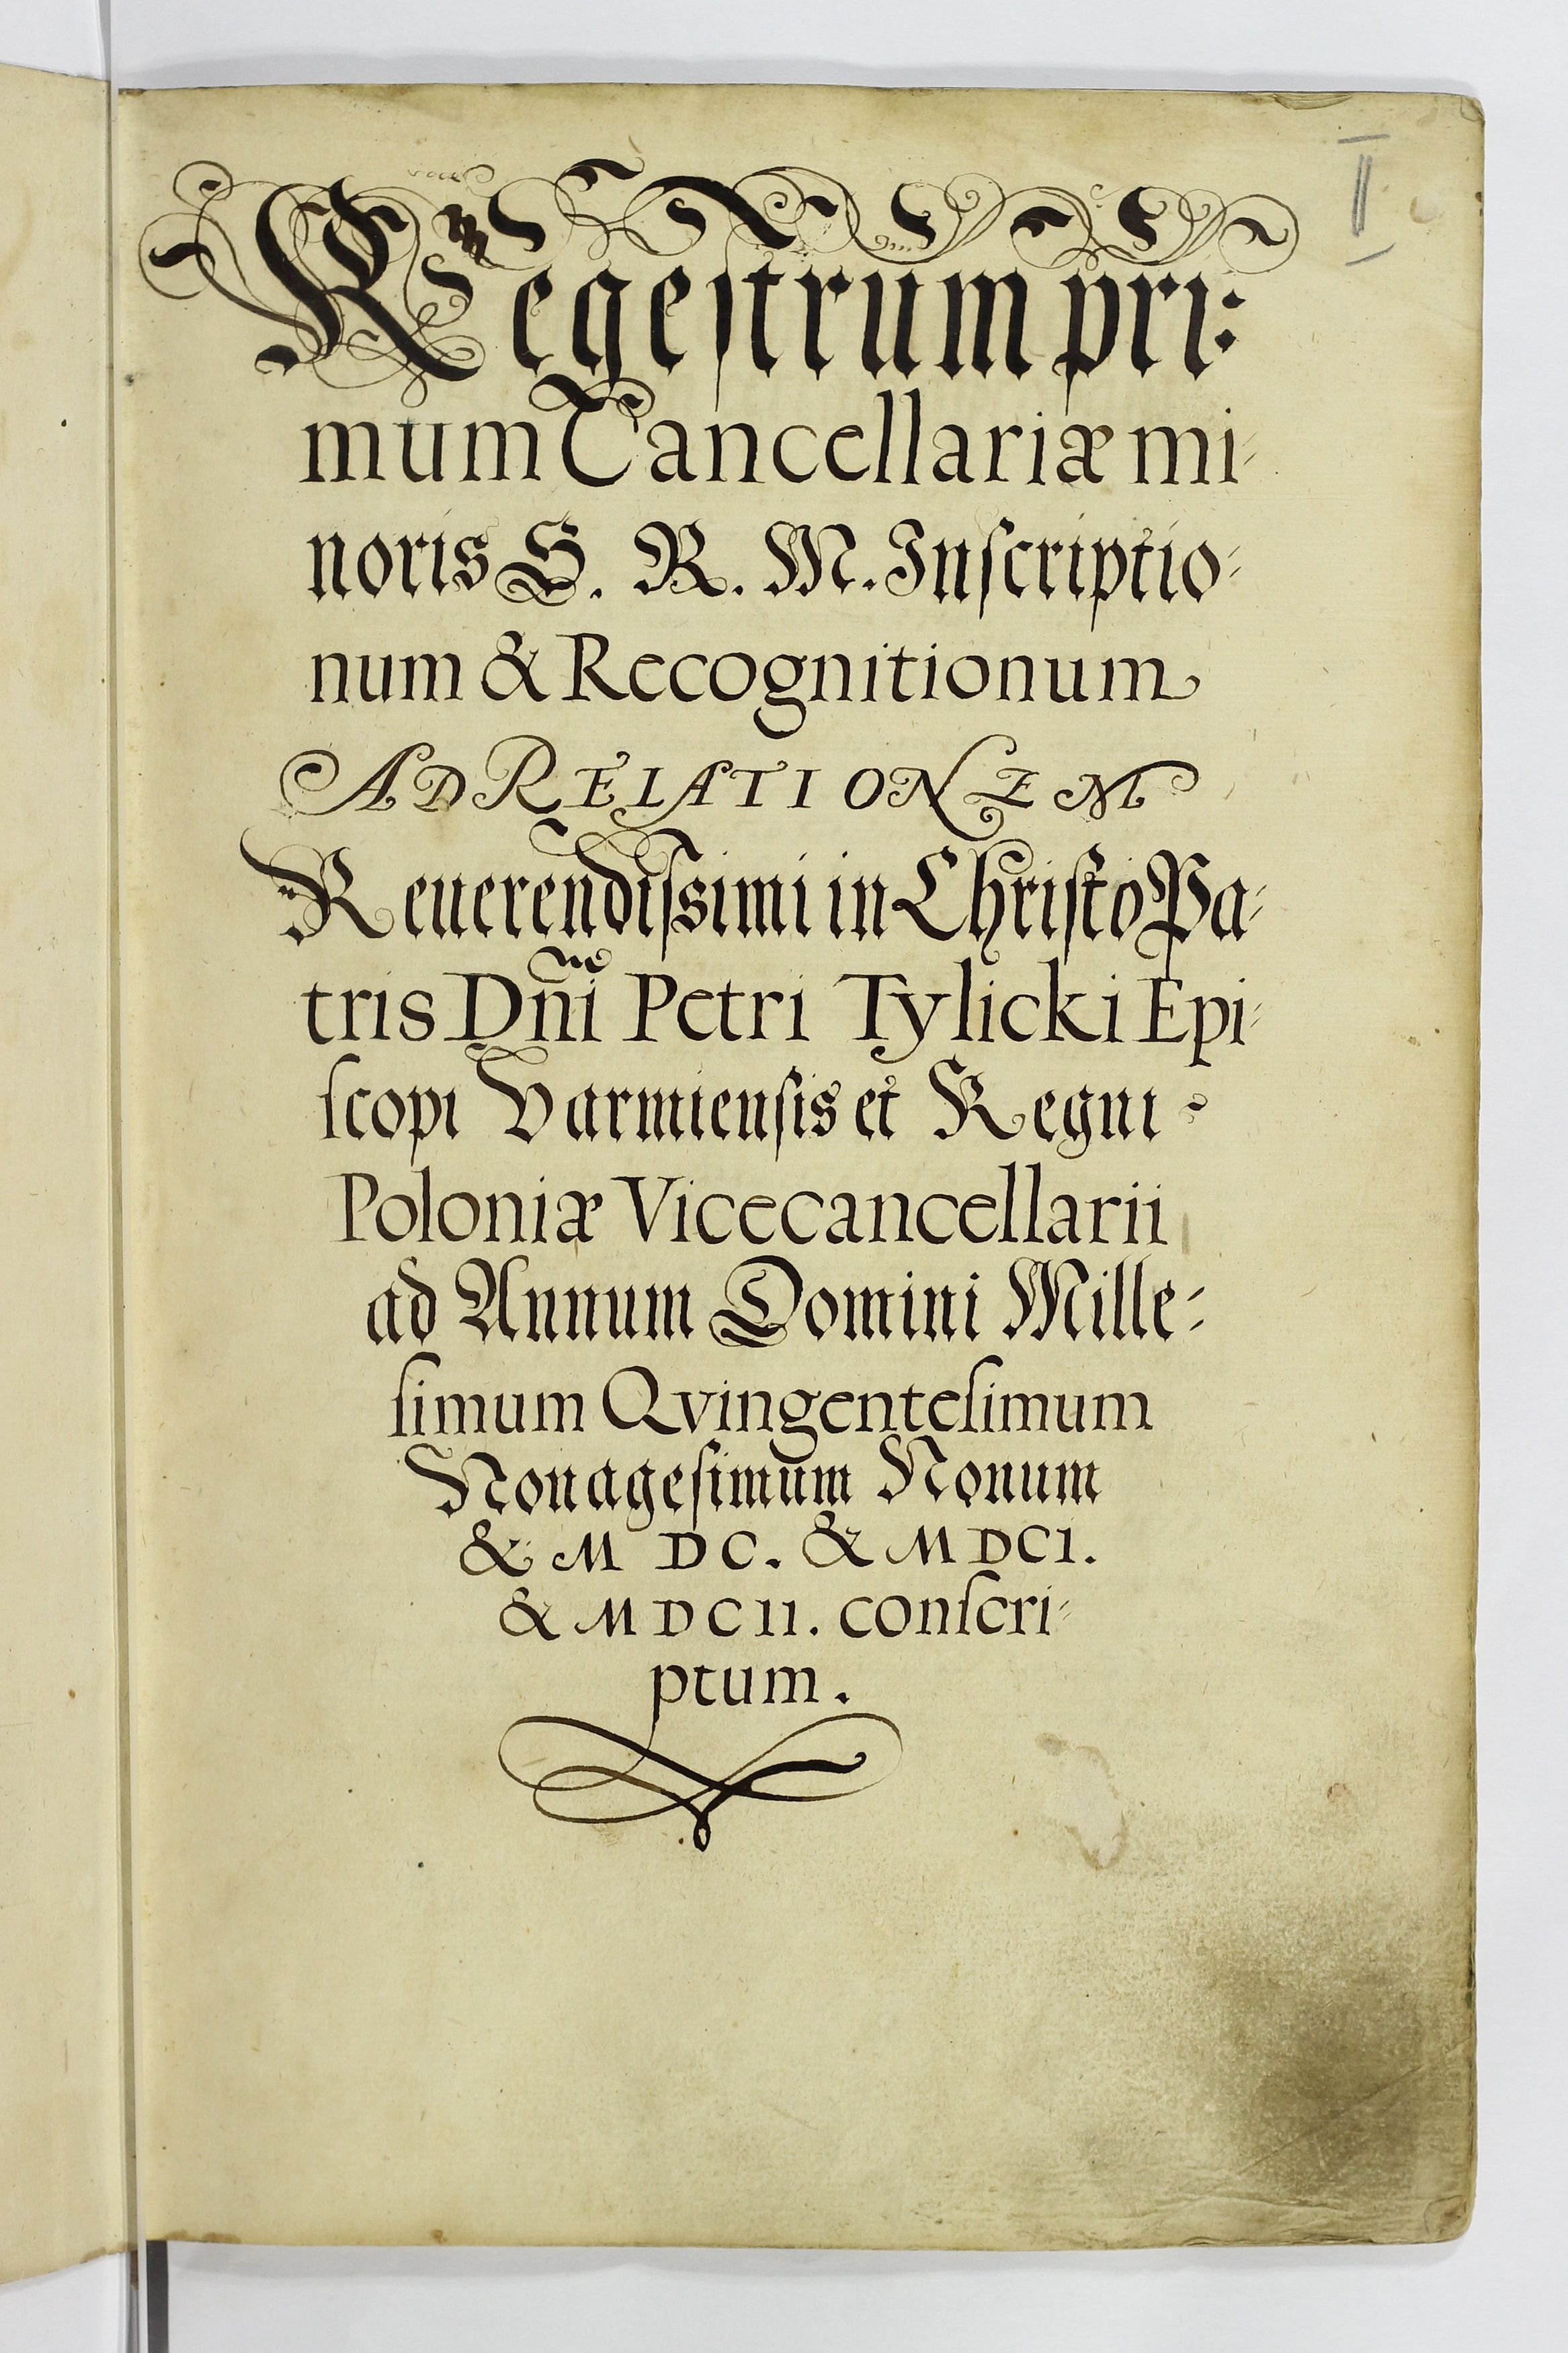 II
Regestrum pri:
mum Cancellariæ mi-
noris S. R. M. Inscriptio-
num & Recognitionum
AD RELATIONEM
Reuerendissimi in Christo Pa-
tris Dñi Petri Tylicki Epi-
scopi Varmiensis et Regni
Poloniæ Vicecancellarii
ad Annum Domini Mille-
simum Qvingentesimum
Nonagesimum Nonum
& MDC. & MDCI.
& MDCII. conscri-
ptum.